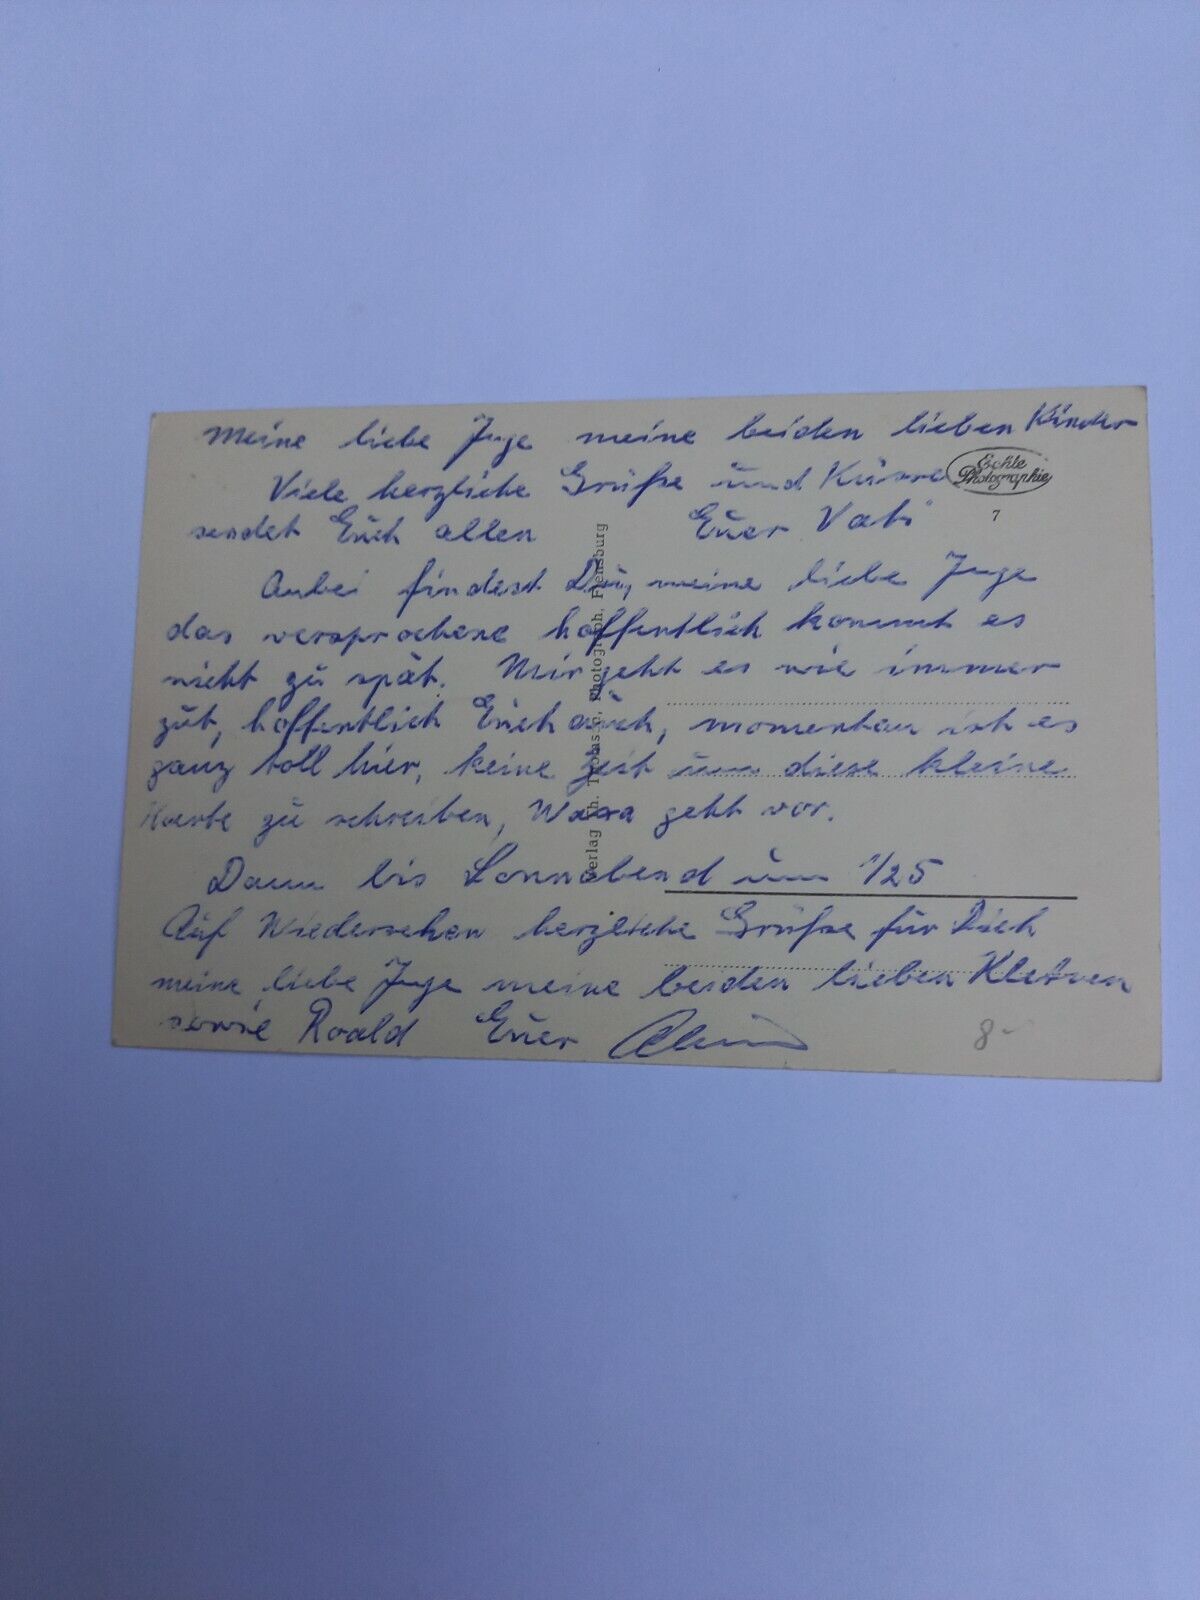 Meine liebe Inge meine beiden lieben Kinder
Viele herzliche Grüße und Küsse
sendet Euch allen Euer Vati
Anbei findest Du, meine liebe Inge
das versprochene hoffentlich kommt es
nicht zu spät. Mir geht es wie immer
gut, hoffentlich Euch auch, momentan ist es
ganz toll hier, keine Zeit um diese kleine
Karte zu schreiben, geht vor.
Dann bis Sonnabend um 1/25
Auf Wiedersehen herzliche Grüße für Dich
meine liebe Inge meine beiden lieben
sowie Roald Euer
8-
Echte
Photographie
7
Verlag Th. Thomsen, Photograph, Flensburg